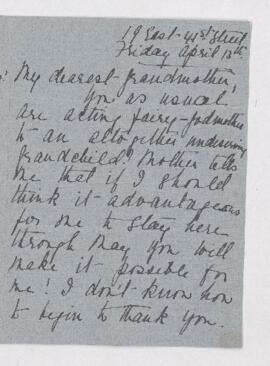 19 East- 41st Street
Friday April 13th.
My dearest grandmother,
You as usual
are acting fairy-godmother
to an altogether undeserving
grandchild! Mother tells
me that if I should
think it advantageous
for me to stay here
through May you will
make it possible for
me! I don't know how
to begin to thank you.